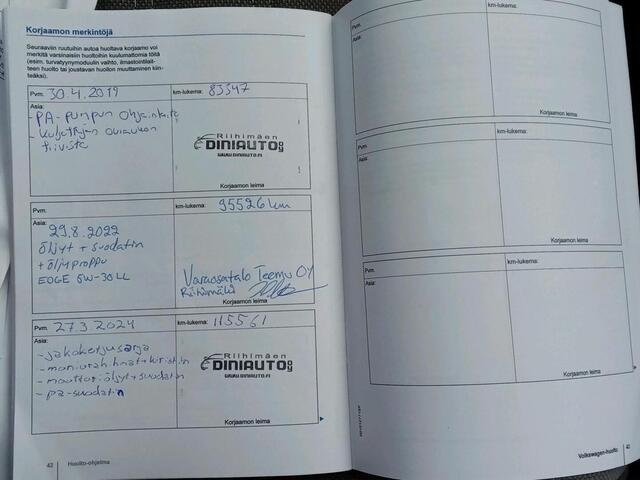 Korjaamon merkintöjä
Seuraaviin ruutuihin autoa huoltava korjaamo voi
merkitä varsinaisiin huoltoihin kuulumattomia töitä
(esim. turvatyynymoduulin vaihto, ilmastointilait-
teen huolto tai joustavan huollon muuttaminen kiin-
teäksi).
Pvm. 30.4.2019
km-lukema: 83347
Asia:
- PA-pumpun
- kuljettajan oviaukon
tiiviste
Riihimäen
DINIAUTO OY
WWW.DINIAUTO.FI
Korjaamon leima
Pvm.
km-lukema: 95526 km
Asia: 29.8.2022
öljyt + suodatin
+ öljyproppu
EDGE 5W-30 LL
Varaosatalo Teemu OY
Riihimäki
Korjaamon leima
Pvm. 27.3.2024
km-lukema: 115561
Asia:
- jakoketjusarja
- moottoriöljyt + suodatin
- pa-suodatin
Riihimäen
DINIAUTO OY
WWW.DINIAUTO.FI
Korjaamon leima
42 Huolto-ohjelma
Pvm.
km-lukema:
Asia:
Korjaamon leima
Pvm.
km-lukema:
Asia:
Korjaamon leima
Pvm.
km-lukema:
Asia:
Korjaamon leima
Volkswagen-huolto